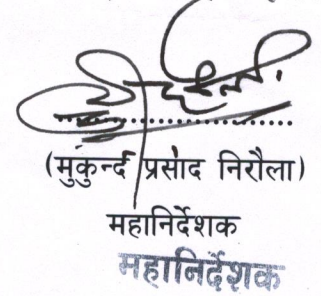 (मुकुन्द प्रसाद निरौला)
महानिर्देशक
महानिर्देशक